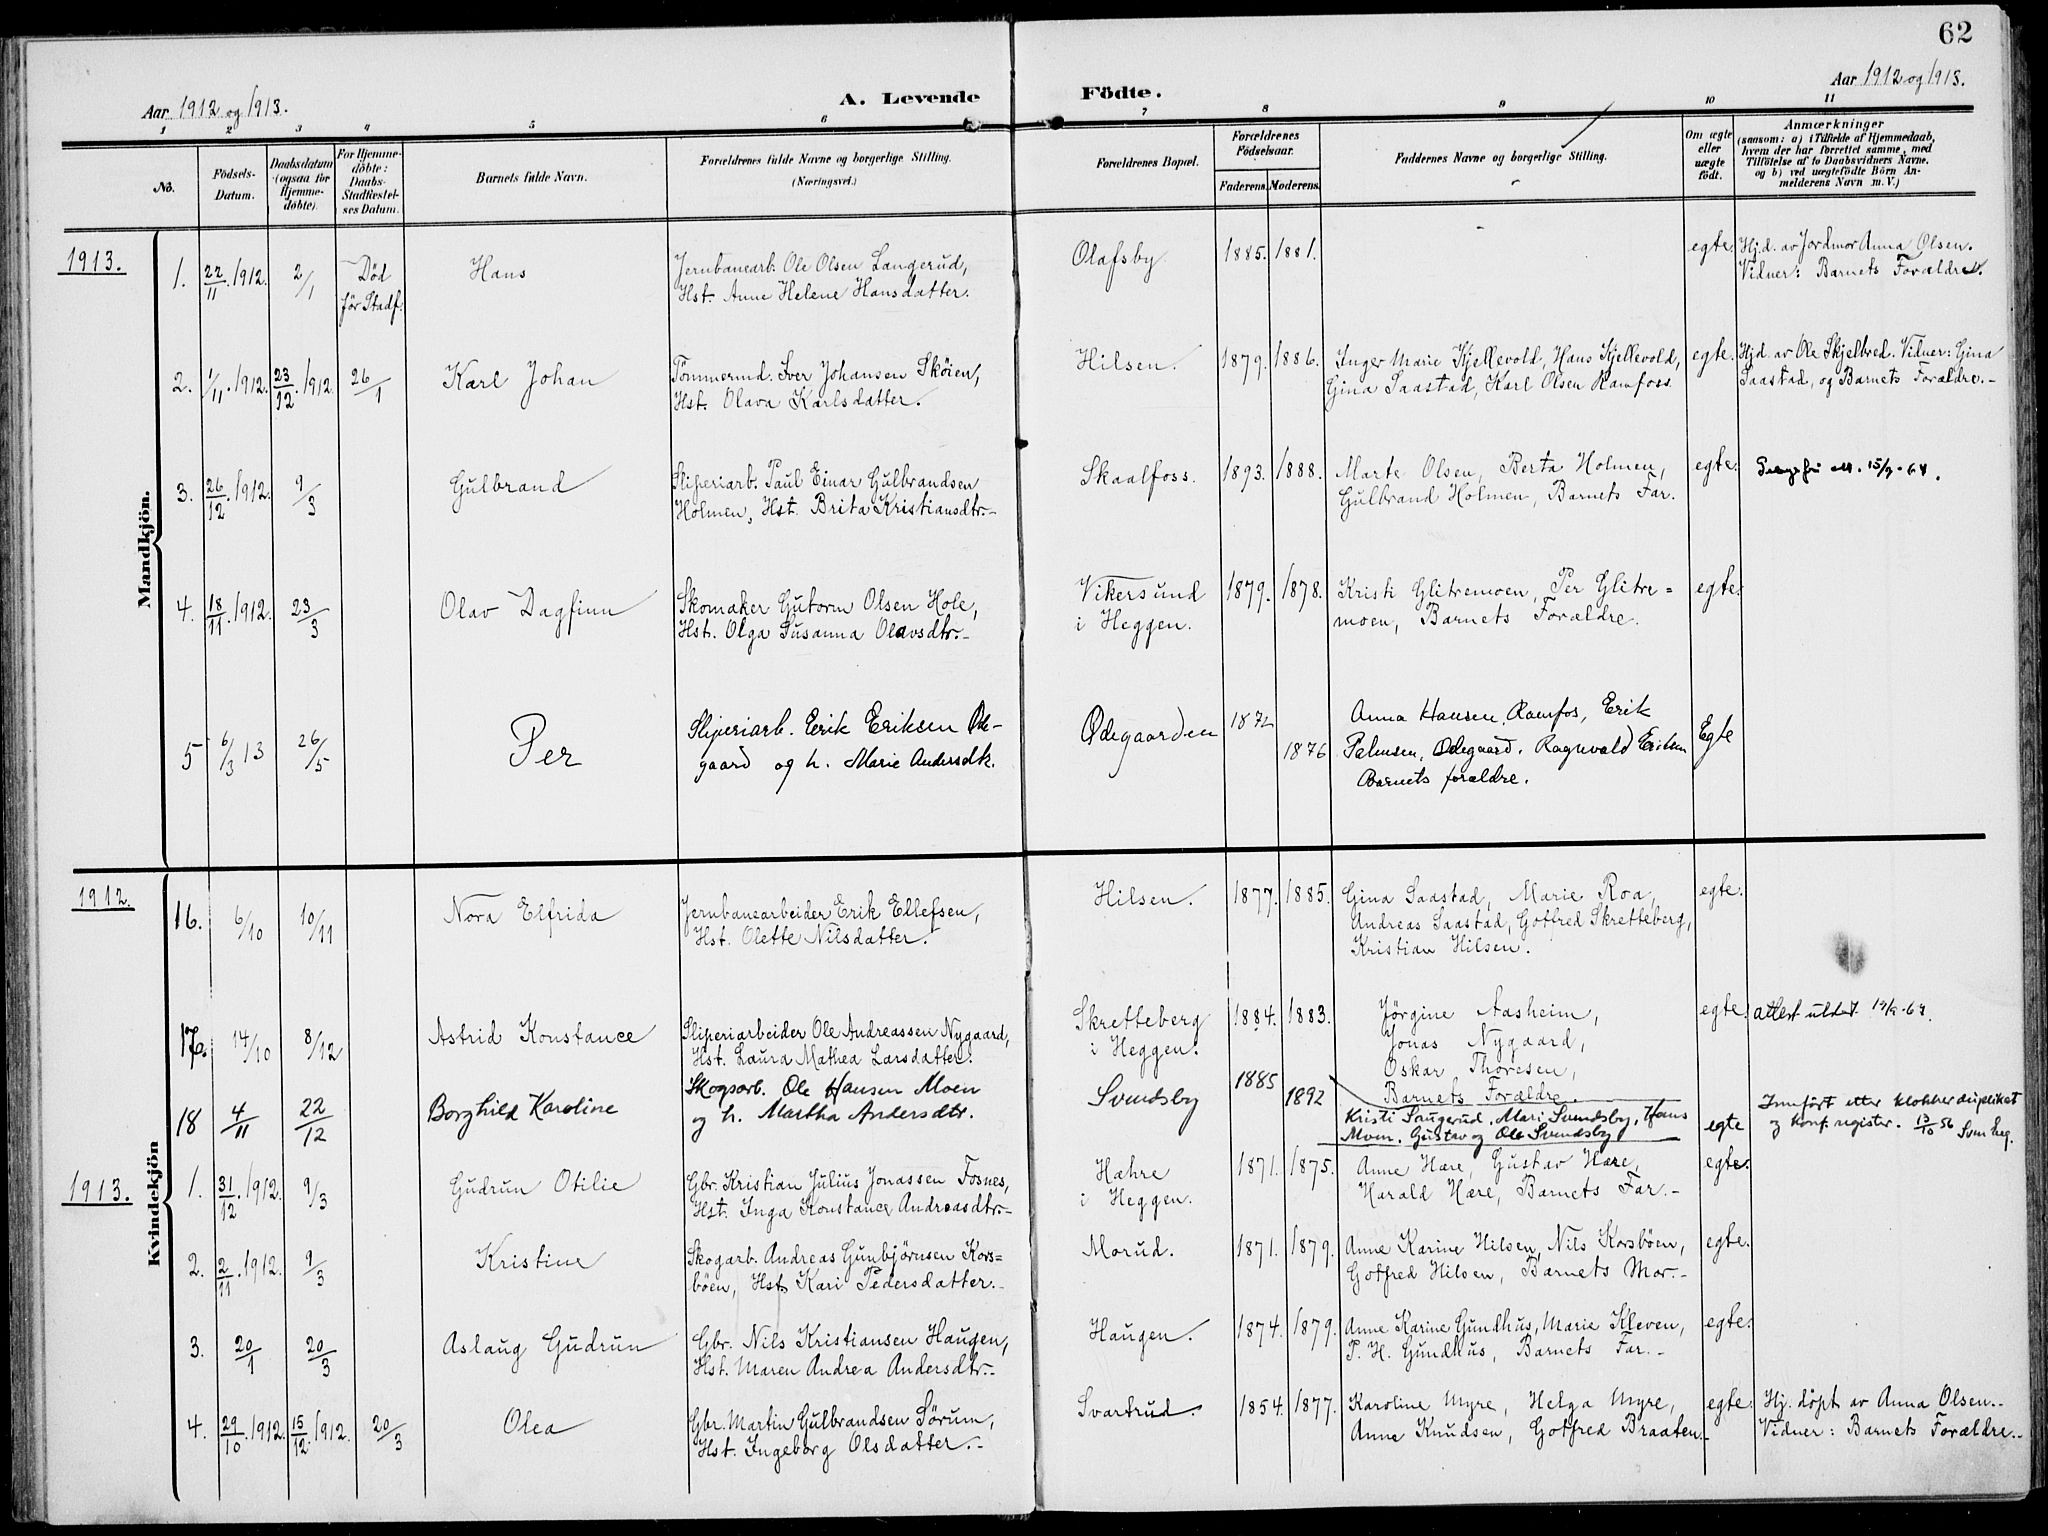 62
Aar 1912 og 1913.
A. Levende Födte.
Aar 1912 og 1913.
1 2 3 4 5 6 7 8 9 10 11
No.
Födsels-
Datum.
Daabsdatum
(ogsaa for
Hjemme-
döbte).
For Hjemme-
döbte:
Daabs-
Stadfæstel-
ses Datum.
Barnets fulde Navn.
Forældrenes fulde Navne og borgerlige Stilling.
(Næringsvei.)
Forældrenes Bopæl.
Forældrenes
Födselsaar.
Faderens. Moderens.
Faddernes Navne og borgerlige Stilling.
Om ægte
eller
uægte
födt.
Anmærkninger
(saasom: a) i Tilfælde af Hjemmedaab,
hvem der har forrettet samme, med
Tilföielse af to Daabsvidners Navne.
og b) ved uægtefödte Börn An-
melderens Navn m. V.)
Mandkjön.
1913.
1. 22/11. 1912. 2/1 Död
för Stadf.
Hans
Jernbanearb. Ole Olsen Langerud,
Hst. Anne Helene Hansdatter.
Olafsby 1885. 1881.
egte. Hjd. av Jordmor Anna Olsen.
Vidner: Barnets Forældre.
2. 1/11. 1912. 23/12. 1912. 26/1
Karl Johan
Tömmermd. Iver Johansen Sköien,
Hst. Olava Karlsdatter.
Hilsen. 1879. 1886.
Inger Marie Kjellevold, Hans Kjellevold,
Gina Saastad, Karl Olsen Ramfoss.
egte. Hjd. av Ole Skjelbred. Vidner: Gina
Saastad, og Barnets Forældre.-
3. 26/12. 1912. 9/3
Gulbrand
Sliperiarb. Paul Einar Gulbrandsen
Holmen, Hst. Brita Kristiansdtr.-
Skaalfoss. 1893. 1888.
Marte Olsen, Berta Holmen,
Gulbrand Holmen, Barnets Far.
egte. 15/9-64.
4. 18/11. 1912. 23/3
Olav Dagfinn
Skomaker Gutorm Olsen Hole,
Hst. Olga Susanna Olavsdtr.-
Vikersund
i Heggen.
1879. 1878.
Kristi Glitremoen, Per Glitre=
moen, Barnets Forældre.
egte.
5 6/3 13 26/5
Per
Sliperiarb. Erik Eriksen Öde-
gaard og h. Marie Andersdtr.
Ödegaarden 1872 1876
Anna Hansen, Ramfos, Erik
Ödegaard. Ragnvald Eriksen
Barnets forældre.
Egte
Kvindekjön
1912.
16. 6/10 10/11
Nora Elfrida
Jernbanearbeider Erik Ellefsen,
Hst. Olette Nilsdatter.
Hilsen. 1877. 1885.
Gina Saastad, Marie Roa,
Andreas Saastad, Gotfred Skretteberg,
Kristian Hilsen.
egte.
17. 14/10 8/12
Astrid Konstance
Sliperiarbeider Ole Andreassen Nygaard,
Hst. Laura Mathea Larsdatter.
Skretteberg
i Heggen.
1884. 1883.
Jörgine Aasheim,
Jonas Nygaard,
Oskar Thoresen,
Barnets Forældre.
egte. attest utst. 19/9-64.
18 4/11 22/12
Borghild Karoline
Skogsarb. Ole Hansen Moen
og h. Martha Andersdtr.
Svendsby 1885 1892
Kristi Saugerud. Mari Svendsby, Hans
Moen. Gustav og Ole Svendsby
egte
Innført etter klokker duplikat
og konf. register. 13/10 56 Svein Heg.
1913.
1. 31/12. 1912. 9/3
Gudrun Otilie
Gbr. Kristian Julius Jonassen Fosnes,
Hst. Inga Konstance Andreasdtr.-
Hahre
i Heggen.
1871. 1875.
Anne Hære, Gustav Hære,
Harald Hære, Barnets Far.-
egte.
2. 2/11. 1912. 9/3
Kristine
Skogarb. Andreas Gunbjørnsen Kors=
böen, Hst. Kari Pedersdatter.-
Morud. 1871. 1879.
Anne Karine Hilsen, Nils Korsböen,
Gotfred Hilsen, Barnets Mor.-
egte.
3. 20/1 20/3
Aslaug Gudrun
Gbr. Nils Kristiansen Haugen,
Hst. Maren Andrea Andersdtr.-
Haugen. 1874. 1879.
Anne Karine Gundhus, Marie Kleven,
P. H. Gundhus, Barnets Far.-
egte.
4. 29/10. 1912. 15/12. 1912. 20/3
Olea
Gbr. Martin Gulbrandsen Sörum,
Hst. Ingeborg Olsdatter.-
Svartrud. 1854. 1877.
Karoline Myre, Helga Myre,
Anne Knudsen, Gotfred Braaten.-
egte. Hj. döpt av Anna Olsen.-
Vidner: Barnets Forældre.-